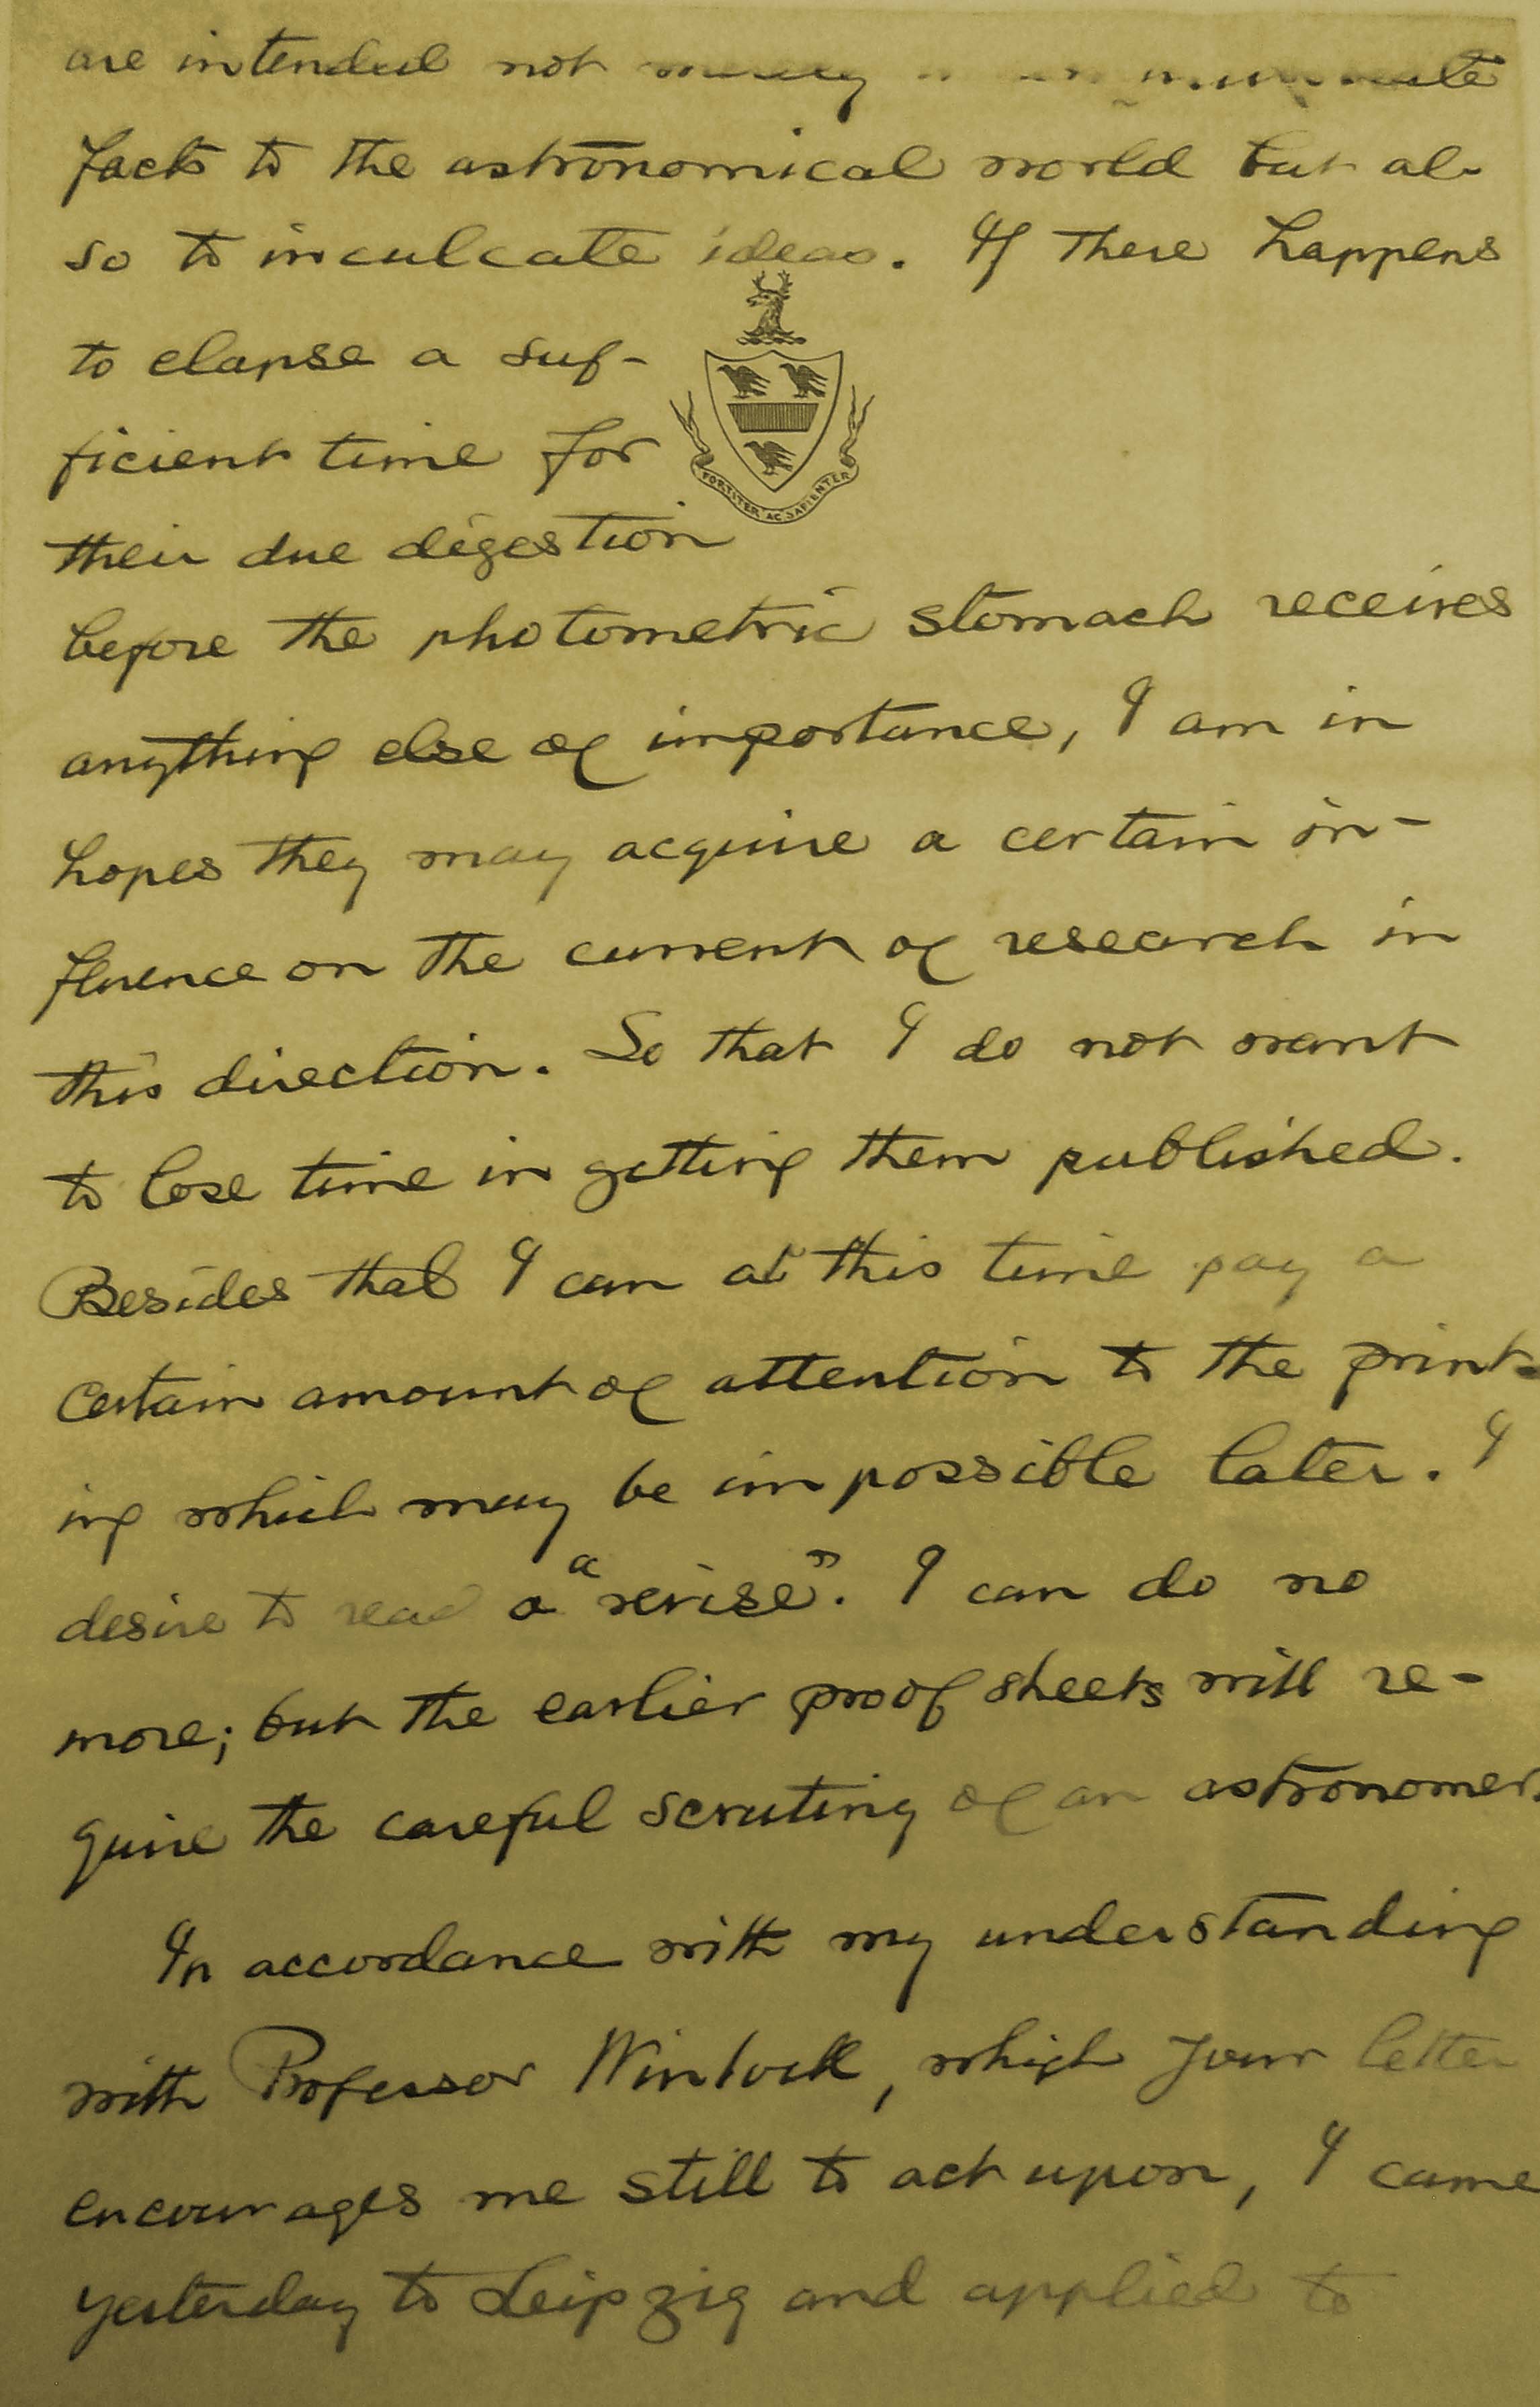 are intended not merely
facts to the astronomical world but al-
so to inculcate ideas. If there happens
to elapse a suf-
ficient time for
FORTITER AC SAPIENTER
their due digestion
before the photometric stomach receives
anything else of importance, I am in
hopes they may acquire a certain in-
fluence on the current of research in
this direction. So that I do not want
to lose time in getting them published.
Besides that I can at this time pay a
certain amount of attention to the print-
ing which may be impossible later. I
desire to read a "revise". I can do no
more; but the earlier proof sheets will re-
quire the careful scrutiny of an astronomer.
In accordance with my understanding
with Professor Winlock, which your letter
encourages me still to act upon, I came
yesterday to Leipzig and applied to